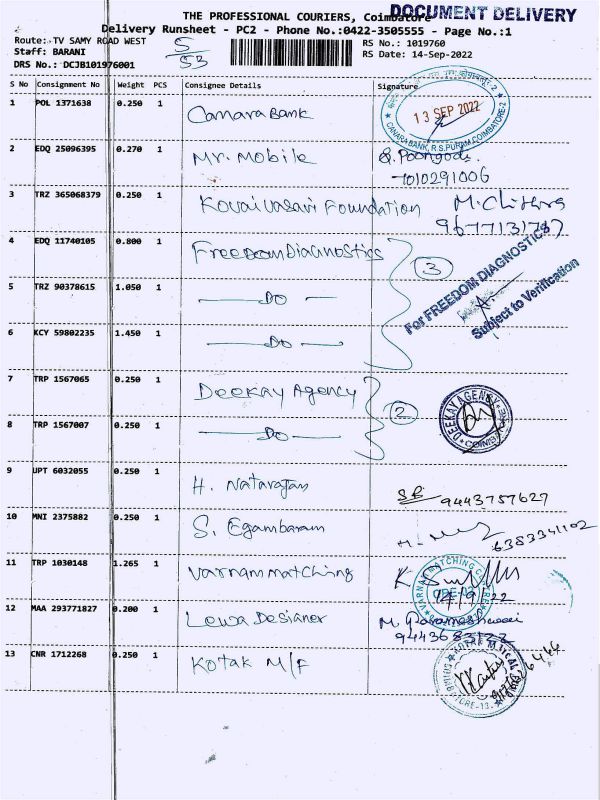 THE PROFESSIONAL COURIERS, Coimbatore
DOCUMENT DELIVERY
Delivery Runsheet - PC2 - Phone No.:0422-3505555 - Page No.:1
Route: TV SAMY ROAD WEST
5/53
RS No.: 1019760
Staff: BARANI
RS Date: 14-Sep-2022
DRS No.: DCJB101976001
S No Consignment No Weight PCS Consignee Details Signature
1 POL 1371638 0.250 1 Canara Bank
13 SEP 2022
CANARA BANK, R.S.PURAM, COIMBATORE-2
2 EDQ 25096395 0.270 1 Mr. Mobile
7010291006
3 TRZ 365068379 0.250 1 Kovai Vasavi Foundation M. Chithra
9677131787
4 EDQ 11740105 0.800 1 Freedom Diagnostics
3
For FREEDOM DIAGNOSTICS
Subject to Verification
5 TRZ 90378615 1.050 1 DO
6 KCY 59802235 1.450 1 DO
7 TRP 1567065 0.250 1 Deekay Agency
2
DEEKAY AGENCY
8 TRP 1567007 0.250 1 DO
9 UPT 6032055 0.250 1 H. Natarajan
9443757627
10 MNI 2375882 0.250 1 S. Egambaram
6383341102
11 TRP 1030148 1.265 1 Varnam Matching
VARNAM MATCHING
14/9/22
12 MAA 293771827 0.200 1 Lewa Desianer
9443683122
13 CNR 1712268 0.250 1 Kotak M/F